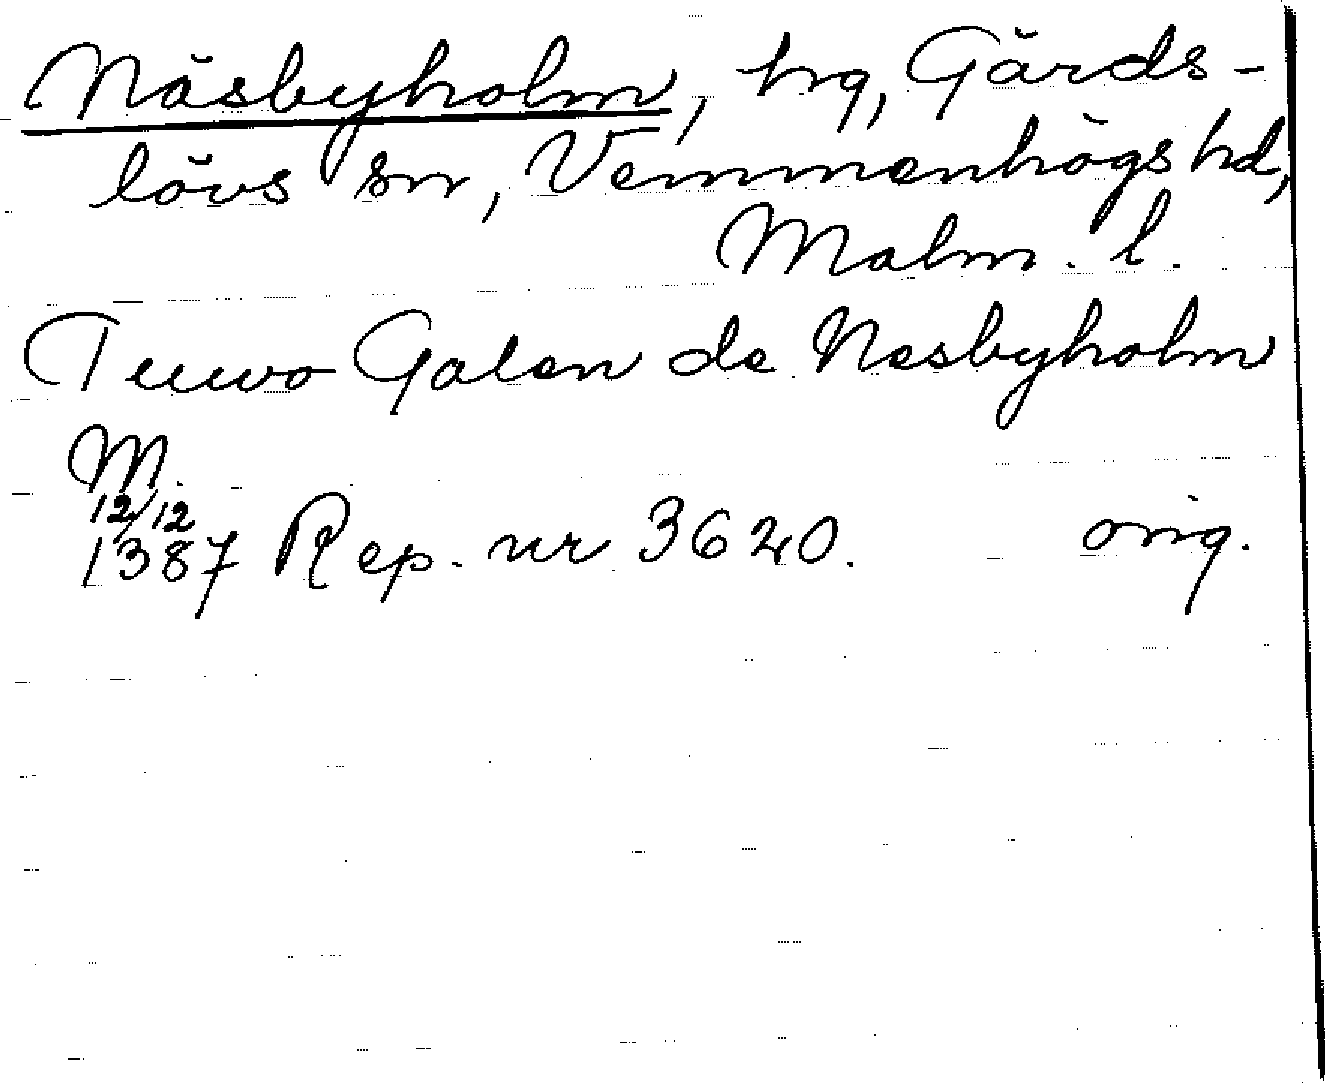 Näsbyholm, hg, Gärds-
lövs sn, Vemmenhögs hd,
Malm. l.
Tuuvo Galen de Nesbyholm
M.
12/12
1387 Rep. nr 3620. orig.